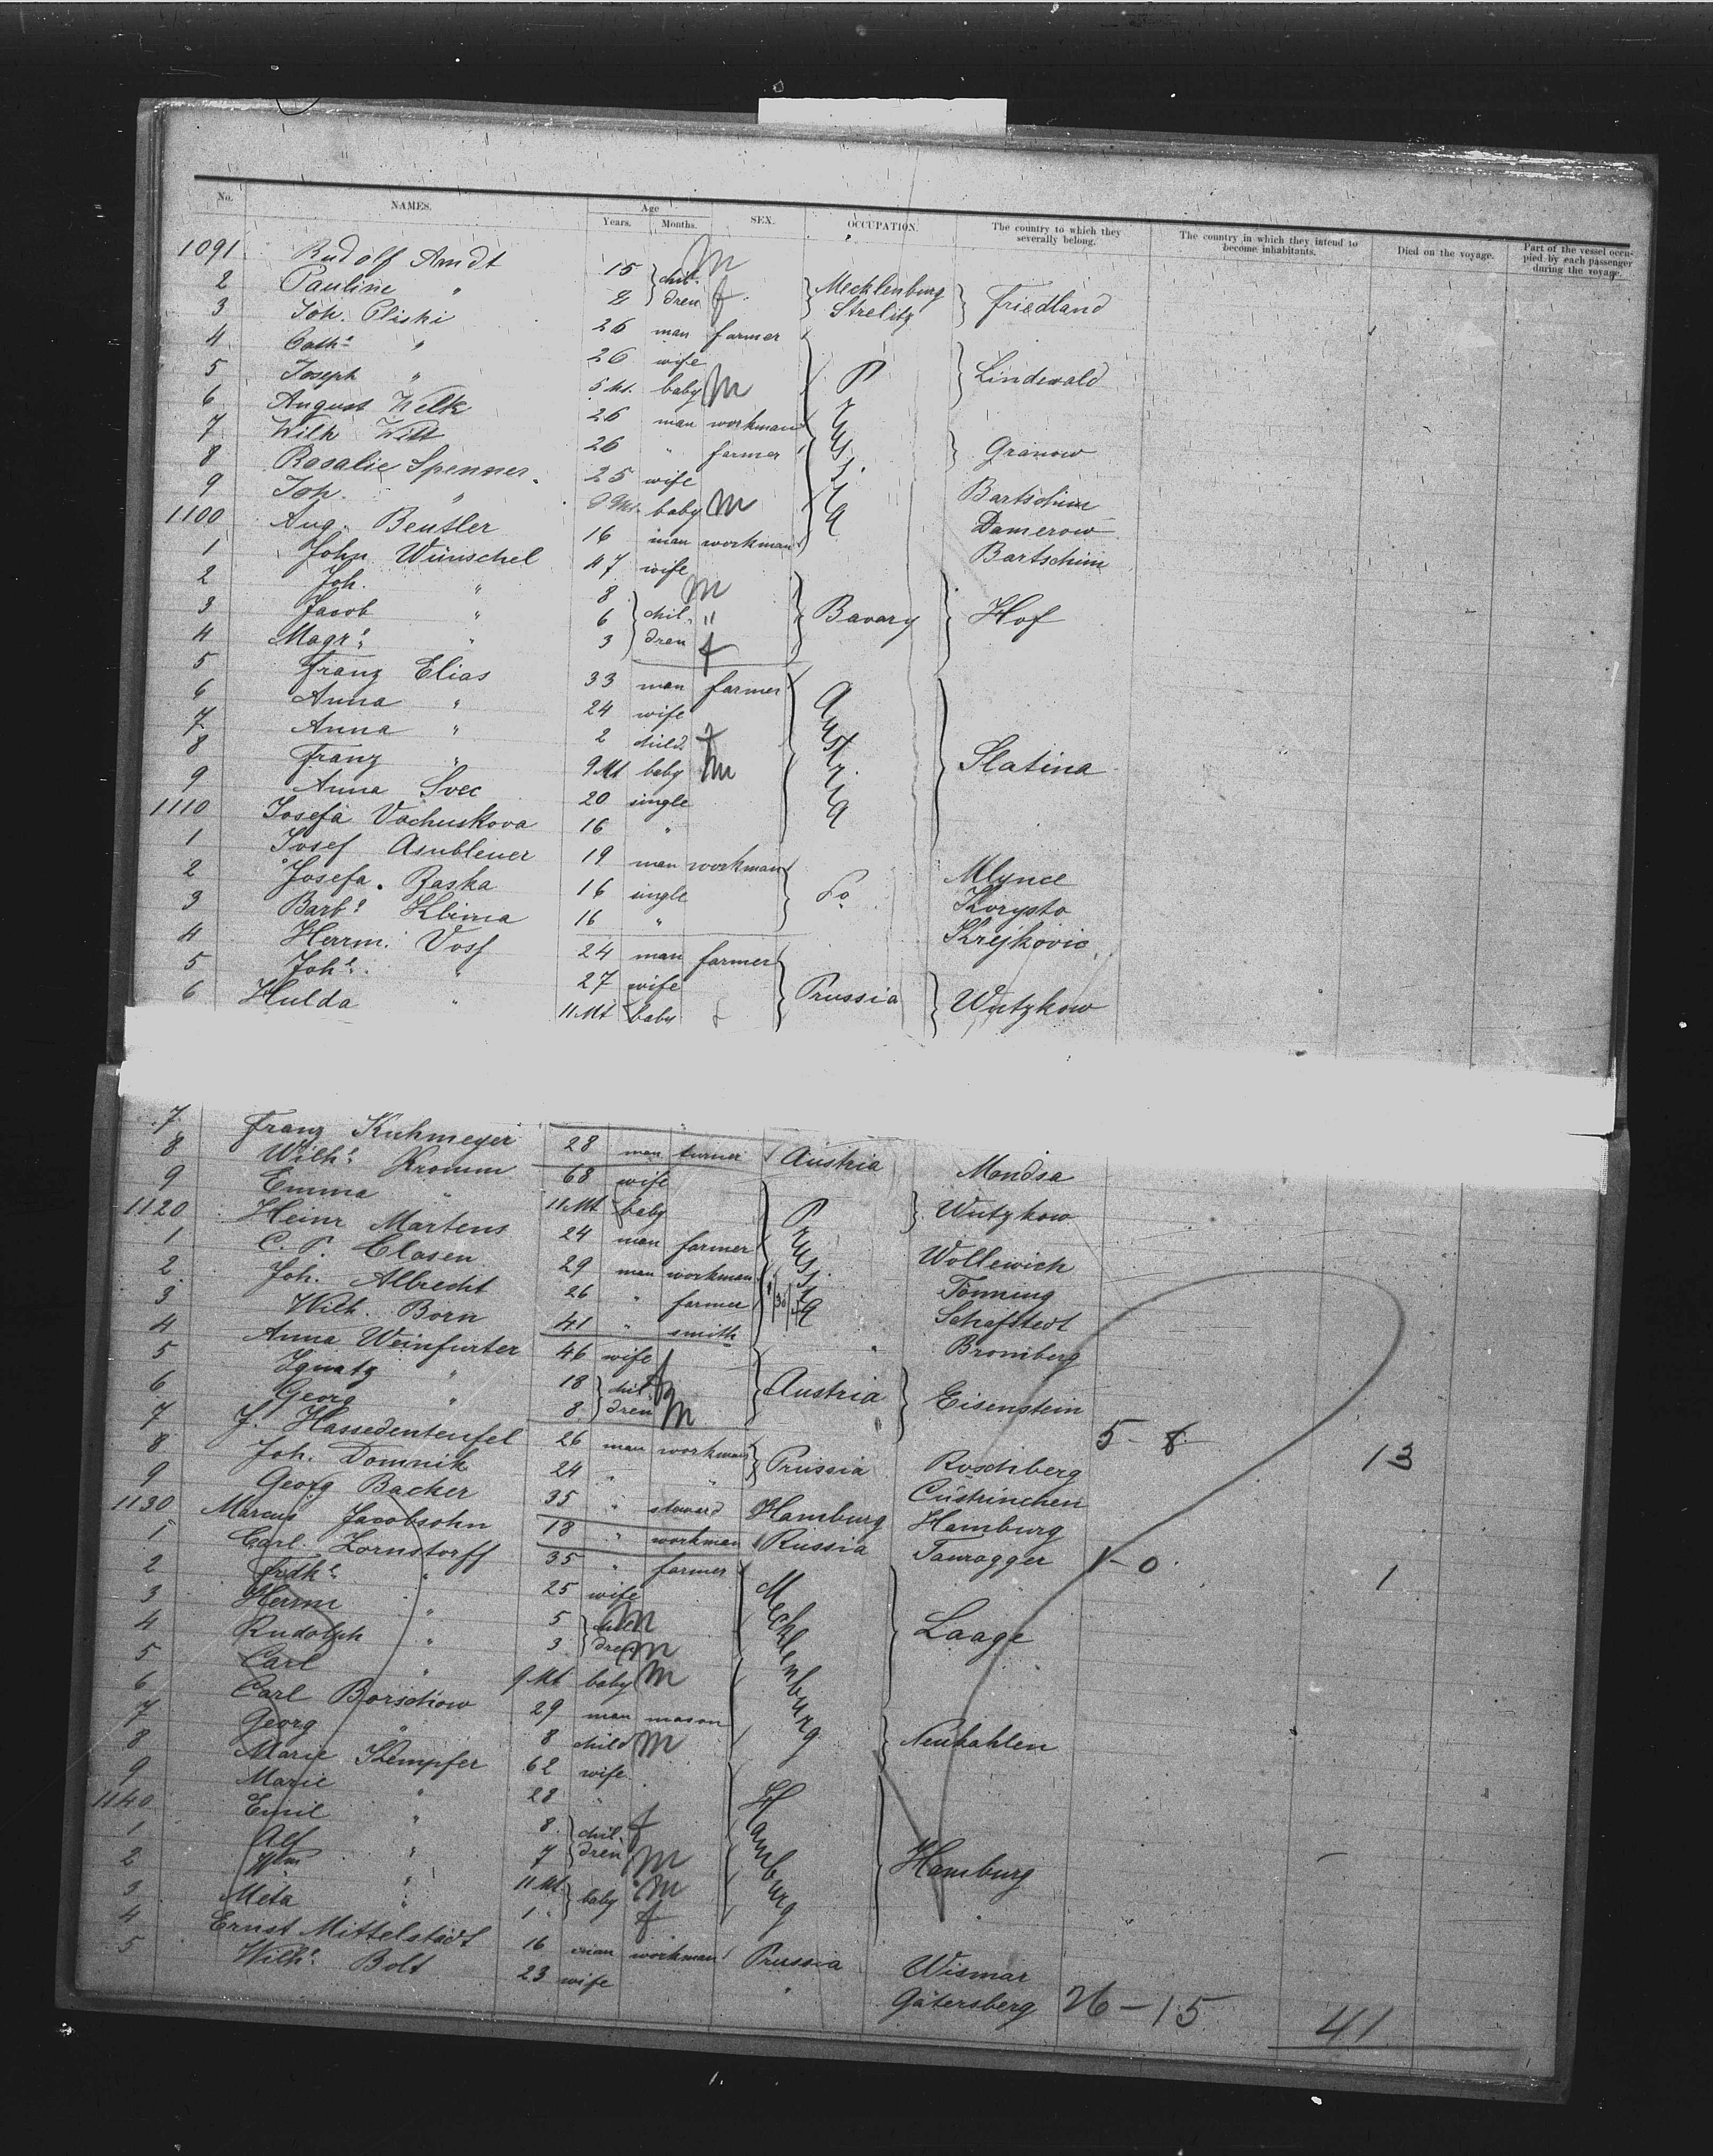 No. NAMES. Age Years. Months. SEX. OCCUPATION. The country to which they severally belong. The country in which they intend to become inhabitants. Died on the voyage. Part of the vessel occupied by each passenger during the voyage.
1091 Rudolf Arndt 15 } chil- m } Mecklenburg } Friedland
2 Pauline " } dren f } Strelitz
3 Joh. Cliski 26 man farmer } Prussia } Lindewald
4 Cath.e " 26 wife
5 Joseph " 5 Mt. baby m
6 August Welk 26 man workman } Granow
7 Wilh Witt 26 " farmer
8 Rosalie Spenner 25 wife Bartschin
9 Joh. " 9 Mt. baby m Damerow
1100 Aug. Beutler 16 man workman Bartschin
1 John Wünschel 47 wife } Bavary } Hof
2 Joh. " 8 m
3 Jacob " 6 } chil- "
4 Magr.e " 3 } dren f
5 Franz Elias 33 man farmer } Austria } Slatina
6 Anna " 24 wife
7 Anna " 2 child f
8 Franz " 9 Mt baby m
9 Anna Svec 20 single
1110 Josefa Vachuskova 16 "
1 Josef 19 man workman } Do Mlynce
2 Josefa Raska 16 single Korysto
3 Barb.a Klima 16 " Krejkovic
4 Herrm. Voss 24 man farmer } Prussia } Wutzkow
5 Joh.e " 27 wife
6 Hulda " 11 Mt baby f
7 Franz Kuhmeyer 28 man turner Austria Mondsa
8 Wilh.e Kromm 68 wife } Prussia } Wutzkow
9 Emma " 11 Mt. baby
1120 Heinr Martens 24 man farmer Wollewich
1 C. P. Clasen 29 man workman Tönning
2 Joh. Albrecht 26 " farmer Schafstedt
3 Wilh. Born 41 " smith Bromberg
4 Anna Weinfurter 46 wife } Austria } Eisenstein
5 Ignatz " 18 } chil- m
6 Georg " 8 } dren m 5-8 13
7 J. Hassedenteufel 26 man workman } Prussia Roschberg
8 Joh. Domnik 24 " " Cüstrinchen
9 Georg Backer 35 " steward Hamburg Hamburg
1130 Marcus Jacobsohn 18 " workman Russia Tauroggen 1-0 1
1 Carl Zornstorff 35 " farmer } Mecklenburg } Laage
2 Frdk.e " 25 wife
3 Herm " 5 } chil- m
4 Rudolph " 3 } dren m
5 Carl " 9 Mt baby m
6 Carl Borschow 29 man mason } Neukahlen
7 Georg " 8 child m
8 Marie Kempfer 62 wife } Hamburg } Hamburg
9 Marie " 28 "
1140 Emil " 8 } chil- f
1 Alf " 7 } dren m
2 Wm " 11 Mt. } baby m
3 Meta " 1 " f
4 Ernst Mittelstädt 16 man workman Prussia Wismar
5 Wilh.e Bolt 23 wife " Gätersberg 26-15 41